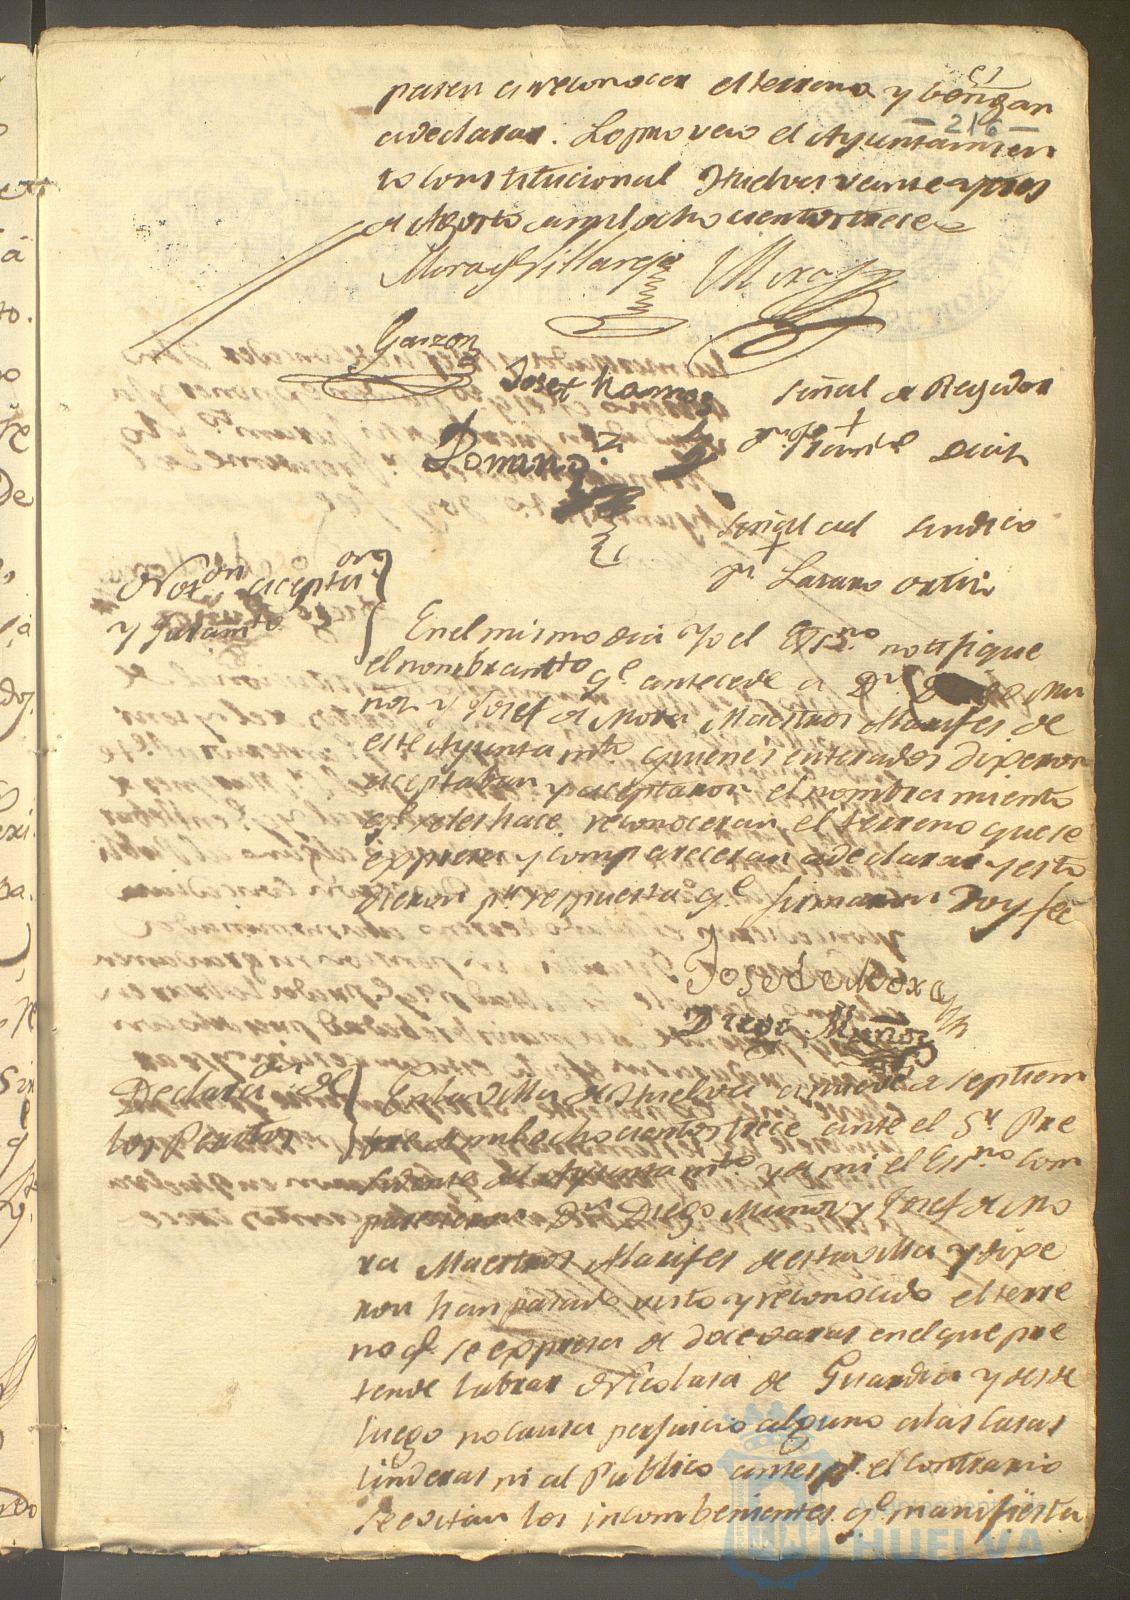 pasen a reconocer el terreno y bengan
- 216 -
a declarar. Lo proveio el Ayuntamien
to Constitucional Huelva veinte y tres
de Agosto de mil ocho cientos trece
Mora Villarejo Mora
Garzon
Josef Ramos
Romero
señal de Regidor
+
señal del sindico
+
Dn. Lazaro Ortiz
Noton. aceptaon.
y Juramto.
En el mismo dia Yo el Essno. notifique
el nombramto. qe. antecede a Dn. Diego Mu
ñoz y Josef de Mora Maestros Alarifes de
este Ayuntamto. quienes enterados dijeron
aceptaban y aceptaron el nombramiento
qe. se les hace reconoceran el terreno que se
expresa y compareceran a declarar y esto
dieron pr. respuesta qe. firmaron Doy fee
Josef de Mora
Diego Muñoz
Declaraon. de
los Peritos
En la Villa de Huelva a nueve de septiem
bre de mil ocho cientos trece ante el Sr. Pre
sidente del Ayuntamto. y de mi el Essno. Com
parecieron Dn. Diego Muñoz y Josef de Mo
ra Maestros Alarifes de esta villa y dije
ron han pasado visto y reconocido el terre
no qe. se expresa de doce varas en el que pre
tende labrar Nicolasa de Guardia y desde
luego no causa perjuicio alguno a las casas
linderas ni al Publico antes pr. el contrario
se evitan los incombenientes qe. manifiesta
Ayuntamiento de
HUELVA